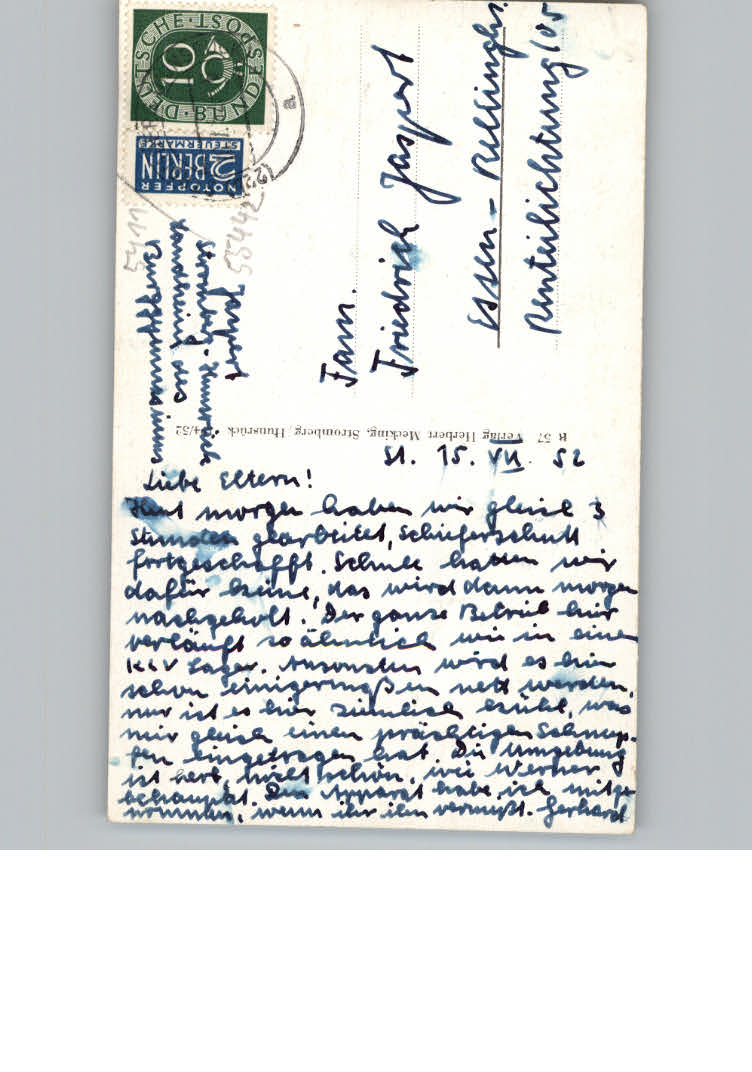 DEUTSCHE · BUNDESPOST
10
NOTOPFER
2 BERLIN
STEUERMARKE
(22
a
5411
55442
Gerhard
Stromberg - Hunsrück
Landheim des
Burggymnasiums
Fam.
Friedrich Jaspert
Essen - Rellinghs.
Renteilichtung 105
R 57 Verlag Herbert Mecking, Stromberg/Hunsrück · 4/52
St. 15. VII. 52
Liebe Eltern!
Heut morgen haben wir gleich 3
Stunden gearbeitet, Schieferschutt
fortgeschafft. Schule hatten wir
dafür keine, das wird dann morgen
nachgeholt. Der ganze Betrieb hier
verläuft so ähnlich wie in einem
KLV Lager. Ansonsten wird es hier
schon einigermaßen nett werden,
nur ist es hier ziemlich kühl, was
mir gleich einen prächtigen Schnup-
fen eingetragen hat. Die Umgebung
ist herb, nicht schön, wie Werner
behauptet. Den Apparat habe ich mitge-
nommen, wenn ihr ihn vermißt. Gerhard